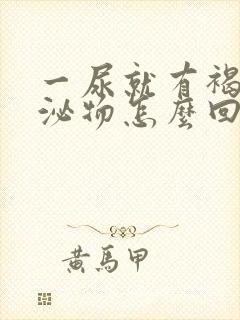 一尿就有褐
泌物怎麼回
黃馬甲